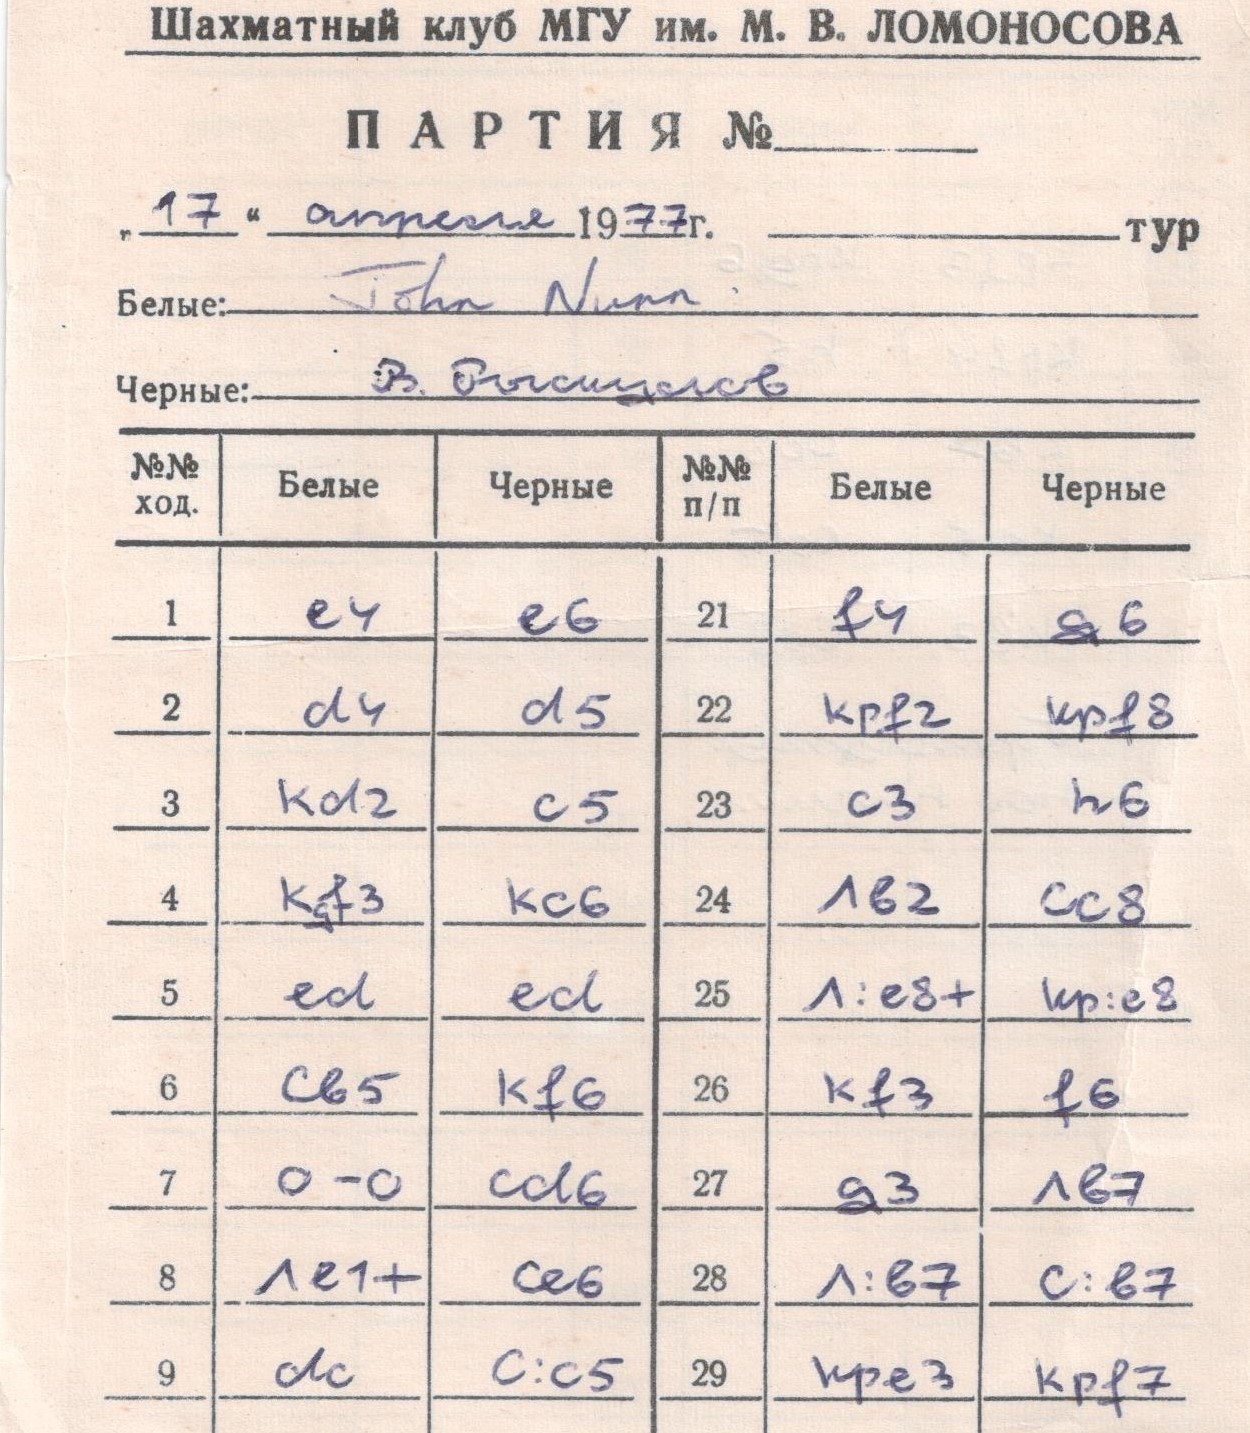 Шахматный клуб МГУ им. М. В. ЛОМОНОСОВА
ПАРТИЯ №
„17“ апреля 1977г. тур
Белые: John Nunn
Черные: В.
№№ ход. Белые Черные №№ п/п Белые Черные
1 e4 e6 21 f4 g6
2 d4 d5 22 Крf2 Крf8
3 Кd2 c5 23 c3 h6
4 Кgf3 Кc6 24 Лв2 Сc8
5 ed ed 25 Л:e8+ Кр:e8
6 Св5 Кf6 26 Кf3 f6
7 0-0 Сd6 27 g3 Лв7
8 Лe1+ Сe6 28 Л:в7 С:в7
9 dc С:c5 29 Крe3 Крf7